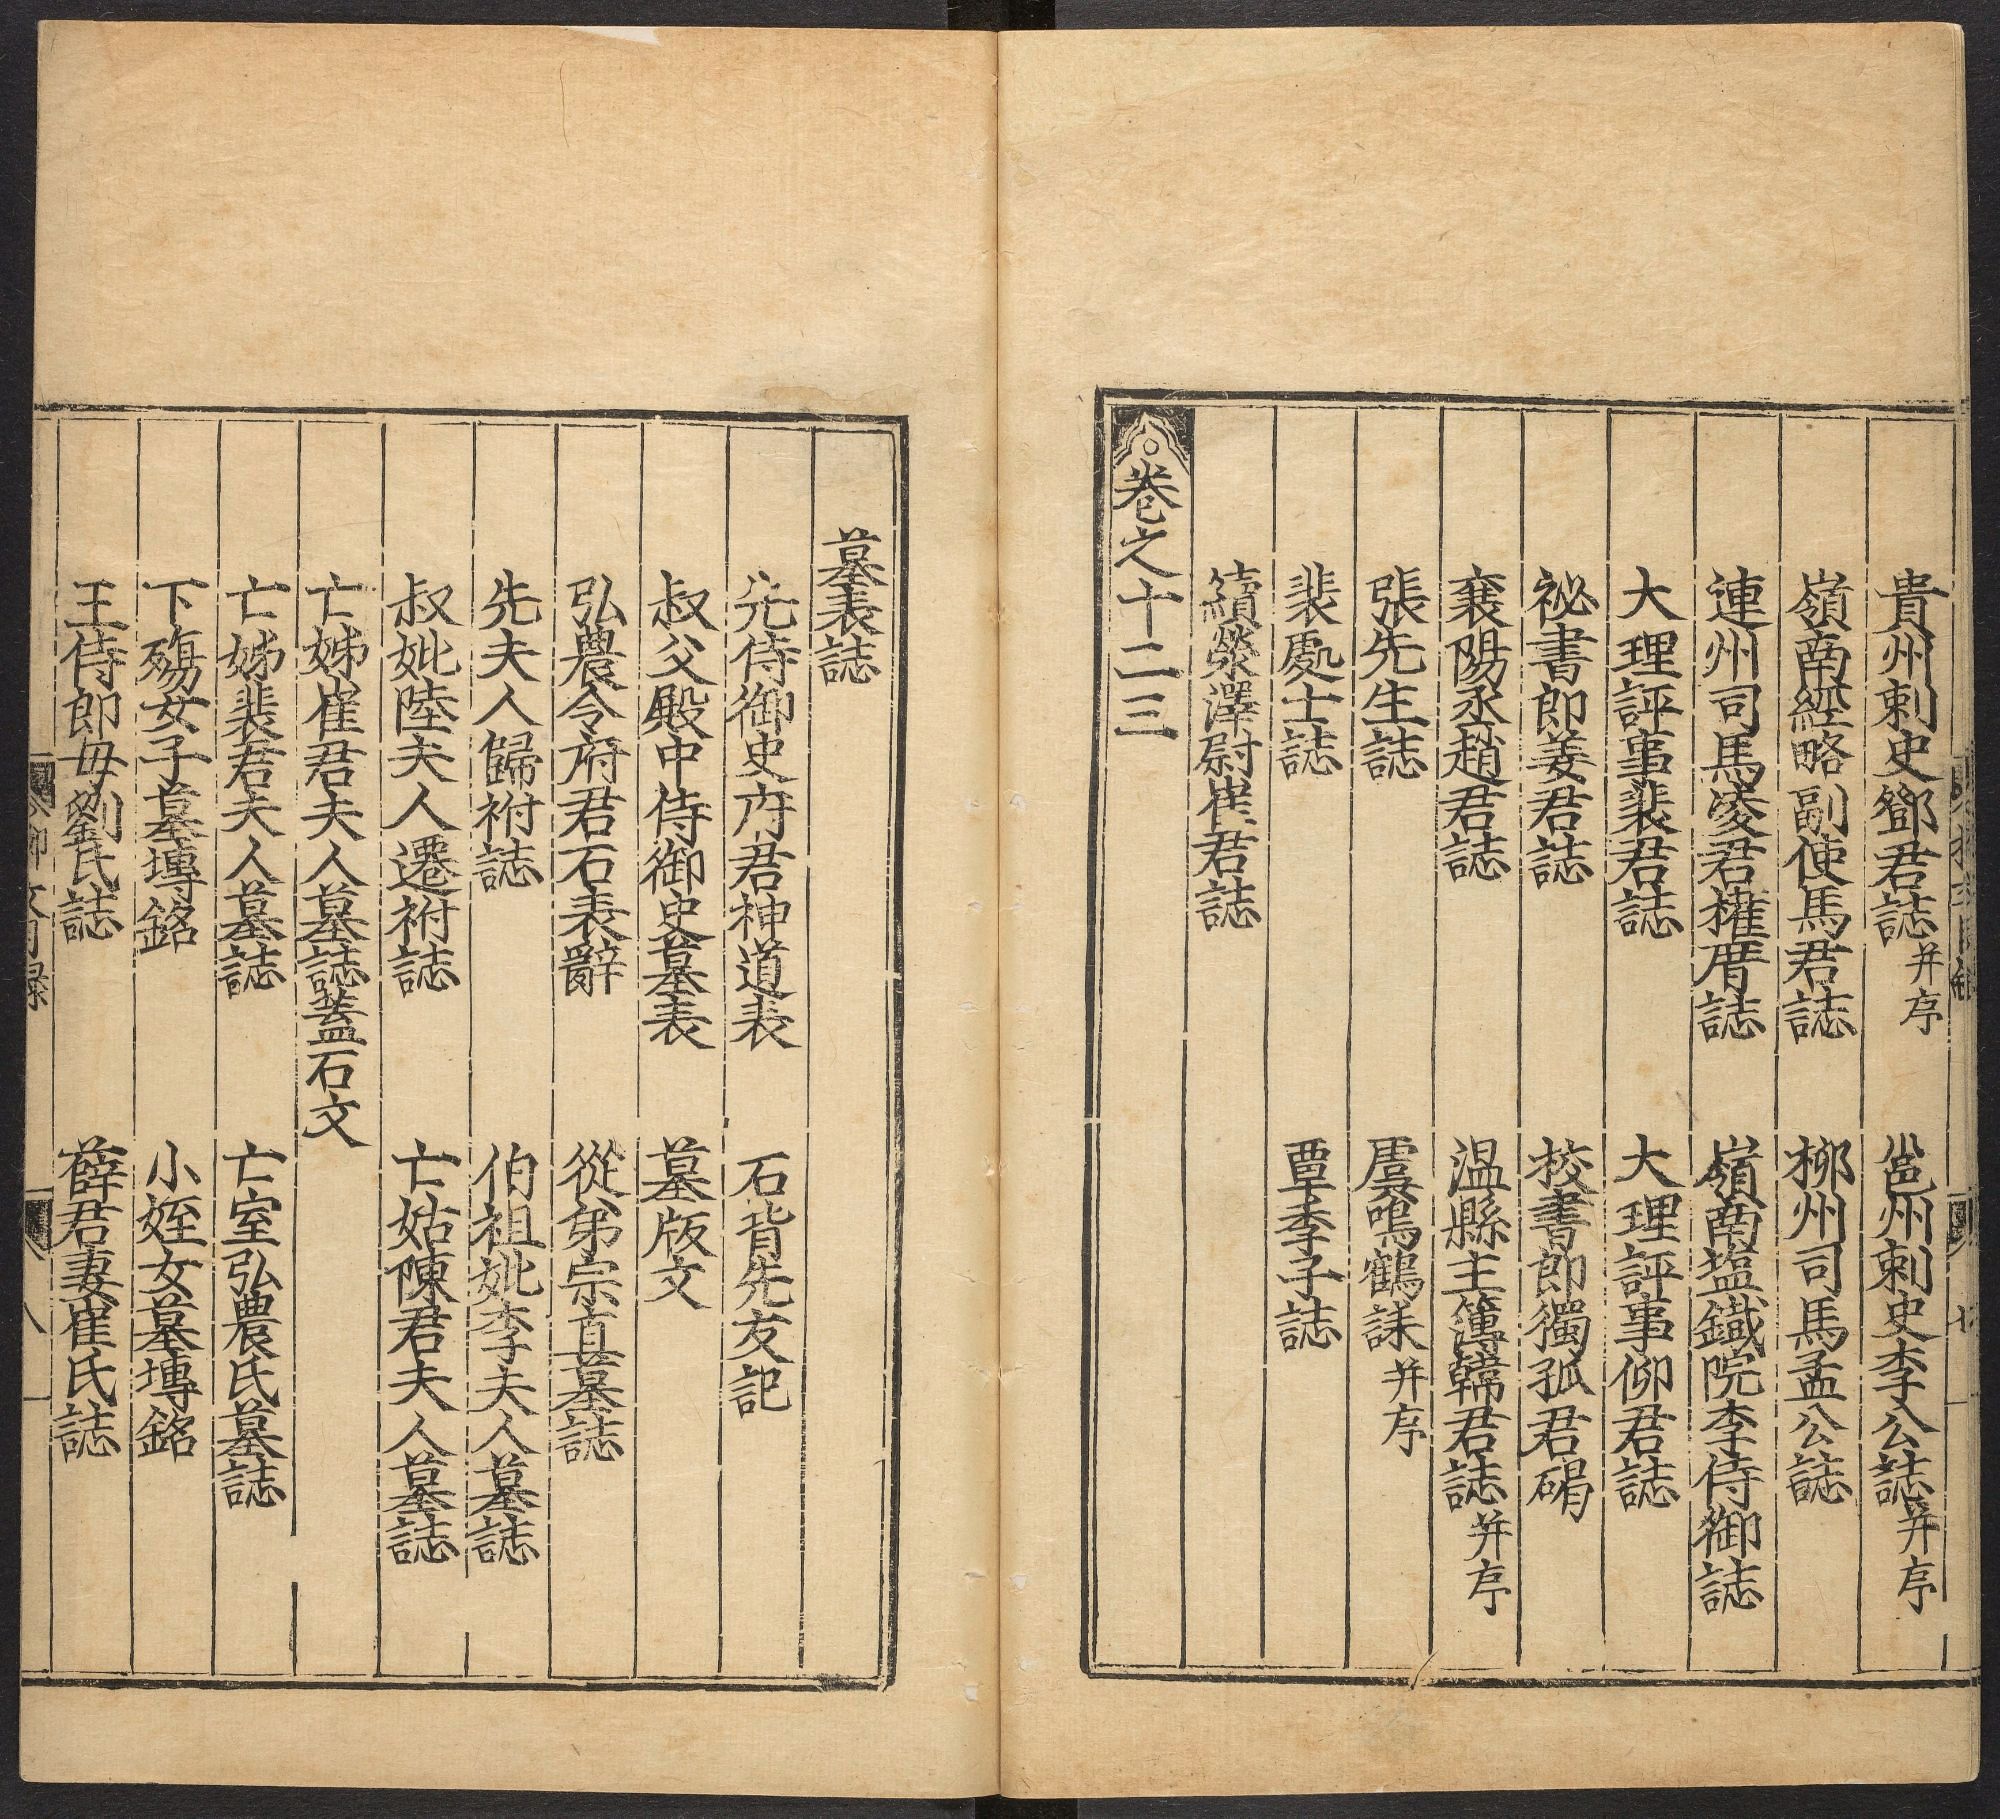 貴州刺史鄧君誌并序　邕州刺史李公誌并序
嶺南經略副使馬君誌　柳州司馬孟公誌
連州司馬凌君權厝誌　嶺南鹽鐵院李侍御誌
大理評事裴君誌　大理評事柳君誌
祕書郎姜君誌　校書郎獨孤君碣
襄陽丞趙君誌　温縣主簿韓君誌并序
張先生誌　虞鳴鶴誄并序
裴處士誌　覃季子誌
續滎澤尉崔君誌
卷之十二三
墓表誌
先侍御史府君神道表　石背先友記
叔父殿中侍御史墓表　墓版文
弘農令府君石表辭　從弟宗直墓誌
先夫人歸祔誌　伯祖妣李夫人墓誌
叔妣陸夫人遷祔誌　亡姑陳君夫人墓誌
亡姊崔君夫人墓誌蓋石文
亡姊裴君夫人墓誌　亡室弘農氏墓誌
下殤女子墓塼銘　小姪女墓塼銘
王侍郎母劉氏誌　薛君妻崔氏誌
八